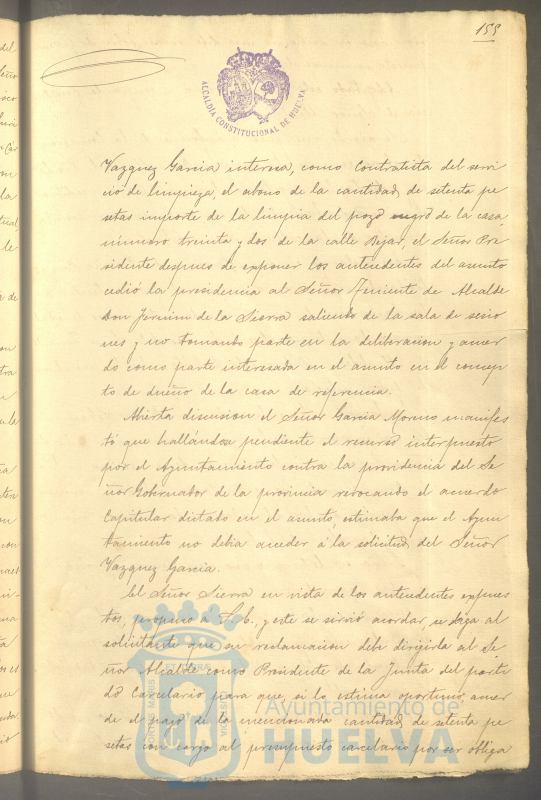 155
ALCALDIA CONSTITUCIONAL DE HUELVA
Vazquez Garcia interesa, como Contratista del servi
cio de limpieza, el abono de la cantidad de setenta pe
setas importe de la limpia del pozo negro de la casa,
número treinta y dos de la calle Bejar, el Señor Pre
sidente despues de exponer los antecedentes del asunto
cedió la presidencia al Señor Teniente de Alcalde
Don Jernim de la Sierra saliendo de la sala de sesio
nes y no tomando parte en la deliberacion y acuer
do como parte interesada en el asunto en el concep
to de dueño de la casa de referencia.
Abierta discusion el Señor Garcia Moreno manifes
tó que hallándose pendiente el recurso interpuesto
por el Ayuntamiento contra la providencia del Se
ñor Gobernador de la provincia revocando el acuerdo
Capitular dictado en el asunto, estimaba que el Ayun
tamiento no debia acceder á la solicitud del Señor
Vazquez Garcia.
El Señor Sierra en vista de los antecedentes expues
tos, propuso a S. E. y este se sirvió acordar, se diga al
solicitante que su reclamacion debe dirigirla al Se
ñor Alcalde como Presidente de la Junta del parti
do Carcelario para que, si lo estima oportuno, acuer
de el pago de la mencionada cantidad de setenta pe
setas con cargo al presupuesto carcelario por ser obliga
Ayuntamiento de
HUELVA